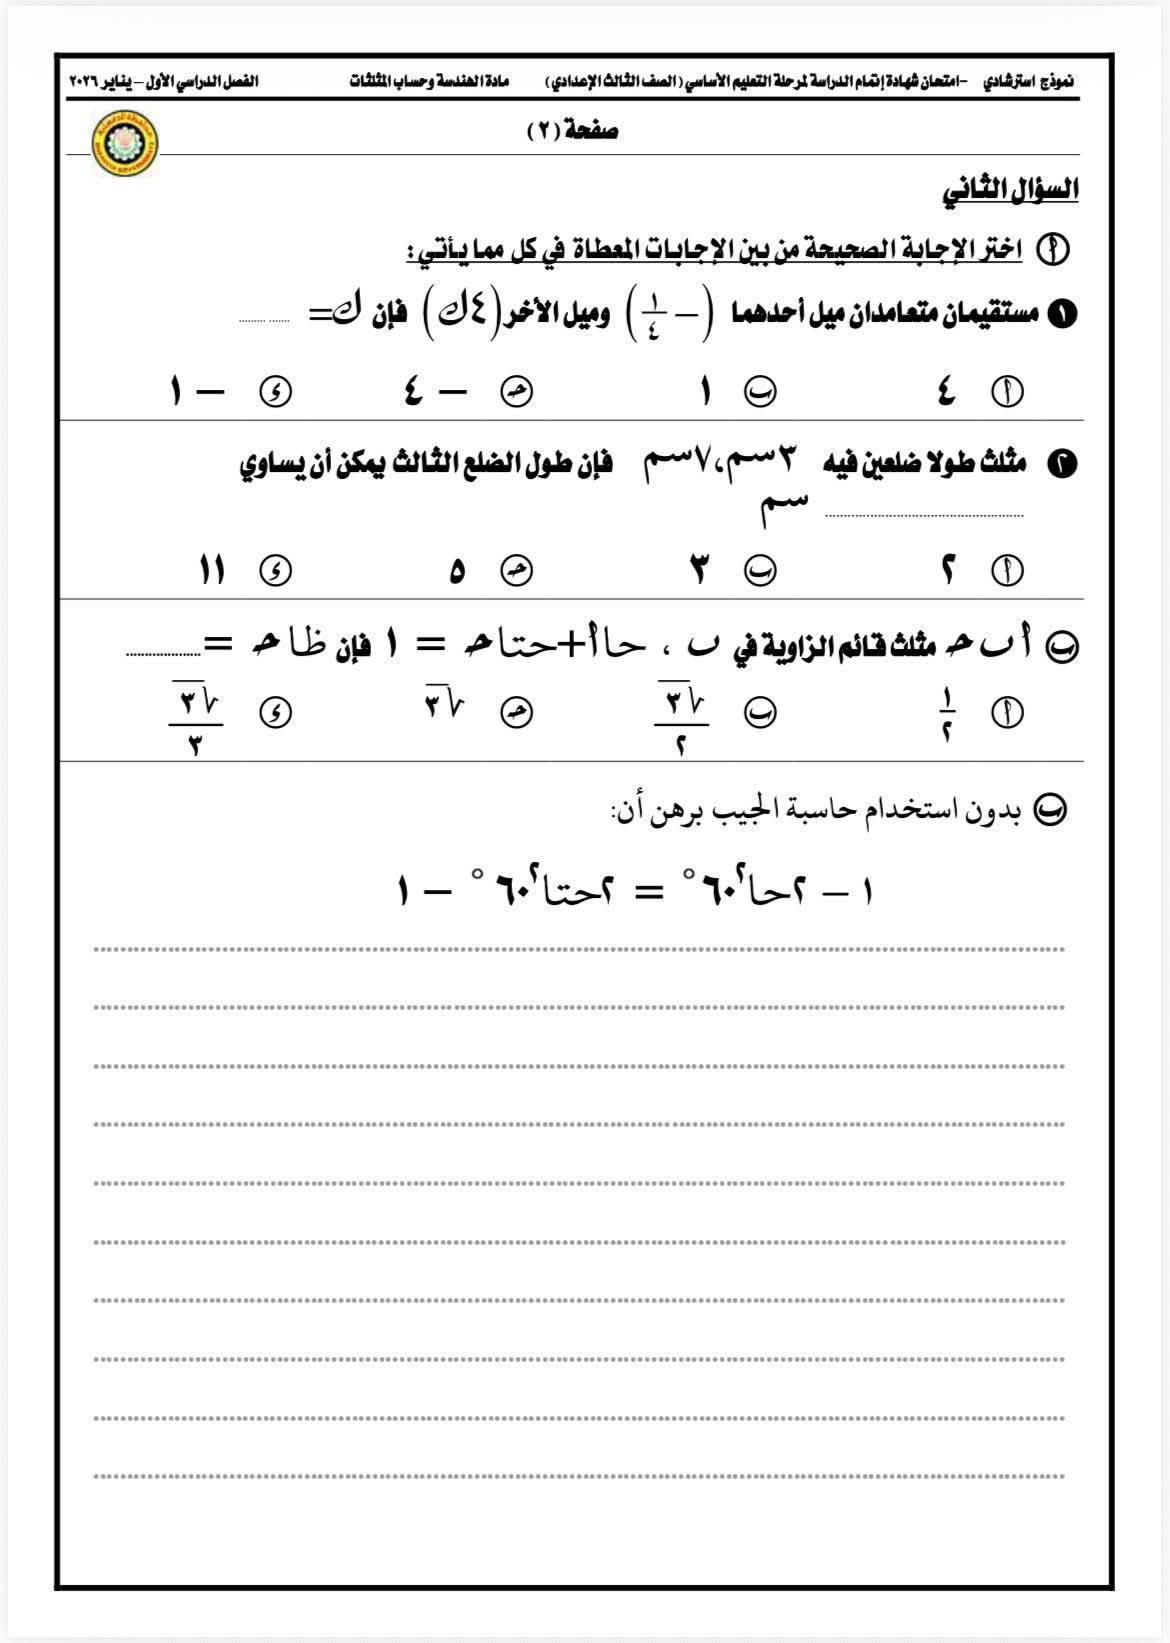 نموذج استرشادي - امتحان شهادة إتمام الدراسة لمرحلة التعليم الأساسي ( الصف الثالث الإعدادي ) مادة الهندسة وحساب المثلثات الفصل الدراسي الأول – يناير ٢٠٢٦
صفحة ( ٢ )
السؤال الثاني
أ اختر الإجابة الصحيحة من بين الإجابات المعطاة في كل مما يأتي :
١ مستقيمان متعامدان ميل أحدهما (– ١/٤) وميل الأخر (٤ك) فإن ك= ......... ......
أ ٤ ب ١ حـ – ٤ و – ١
٢ مثلث طولا ضلعين فيه ٣سم،٧سم فإن طول الضلع الثالث يمكن أن يساوي
.................... سم
أ ٢ ب ٣ حـ ٥ و ١١
ب أ ب حـ مثلث قائم الزاوية في ب ، حا أ+حتا حـ = ١ فإن ظا حـ = ..................
أ ١/٢ ب √٣/٢ حـ √٣ و √٣/٣
ب بدون استخدام حاسبة الجيب برهن أن:
١ – ٢حا٢ ٦٠° = ٢حتا٢ ٦٠° – ١